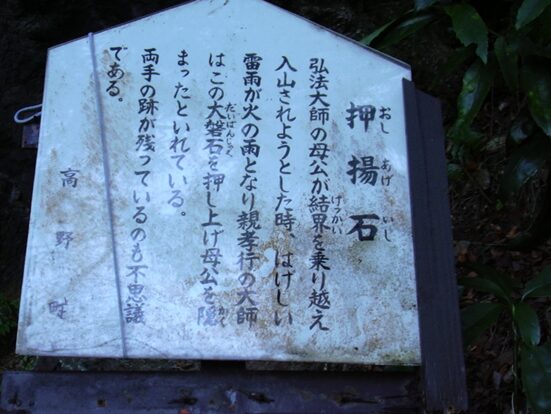 押揚石
おしあげいし
弘法大師の母公が結界を乗り越え
けっかい
入山されようとした時、はげしい
雷雨が火の雨となり親孝行の大師
はこの大磐石を押し上げ母公を隠
だいばんじゃく
かく
まったといれている。
両手の跡が残っているのも不思議
である。
高野町